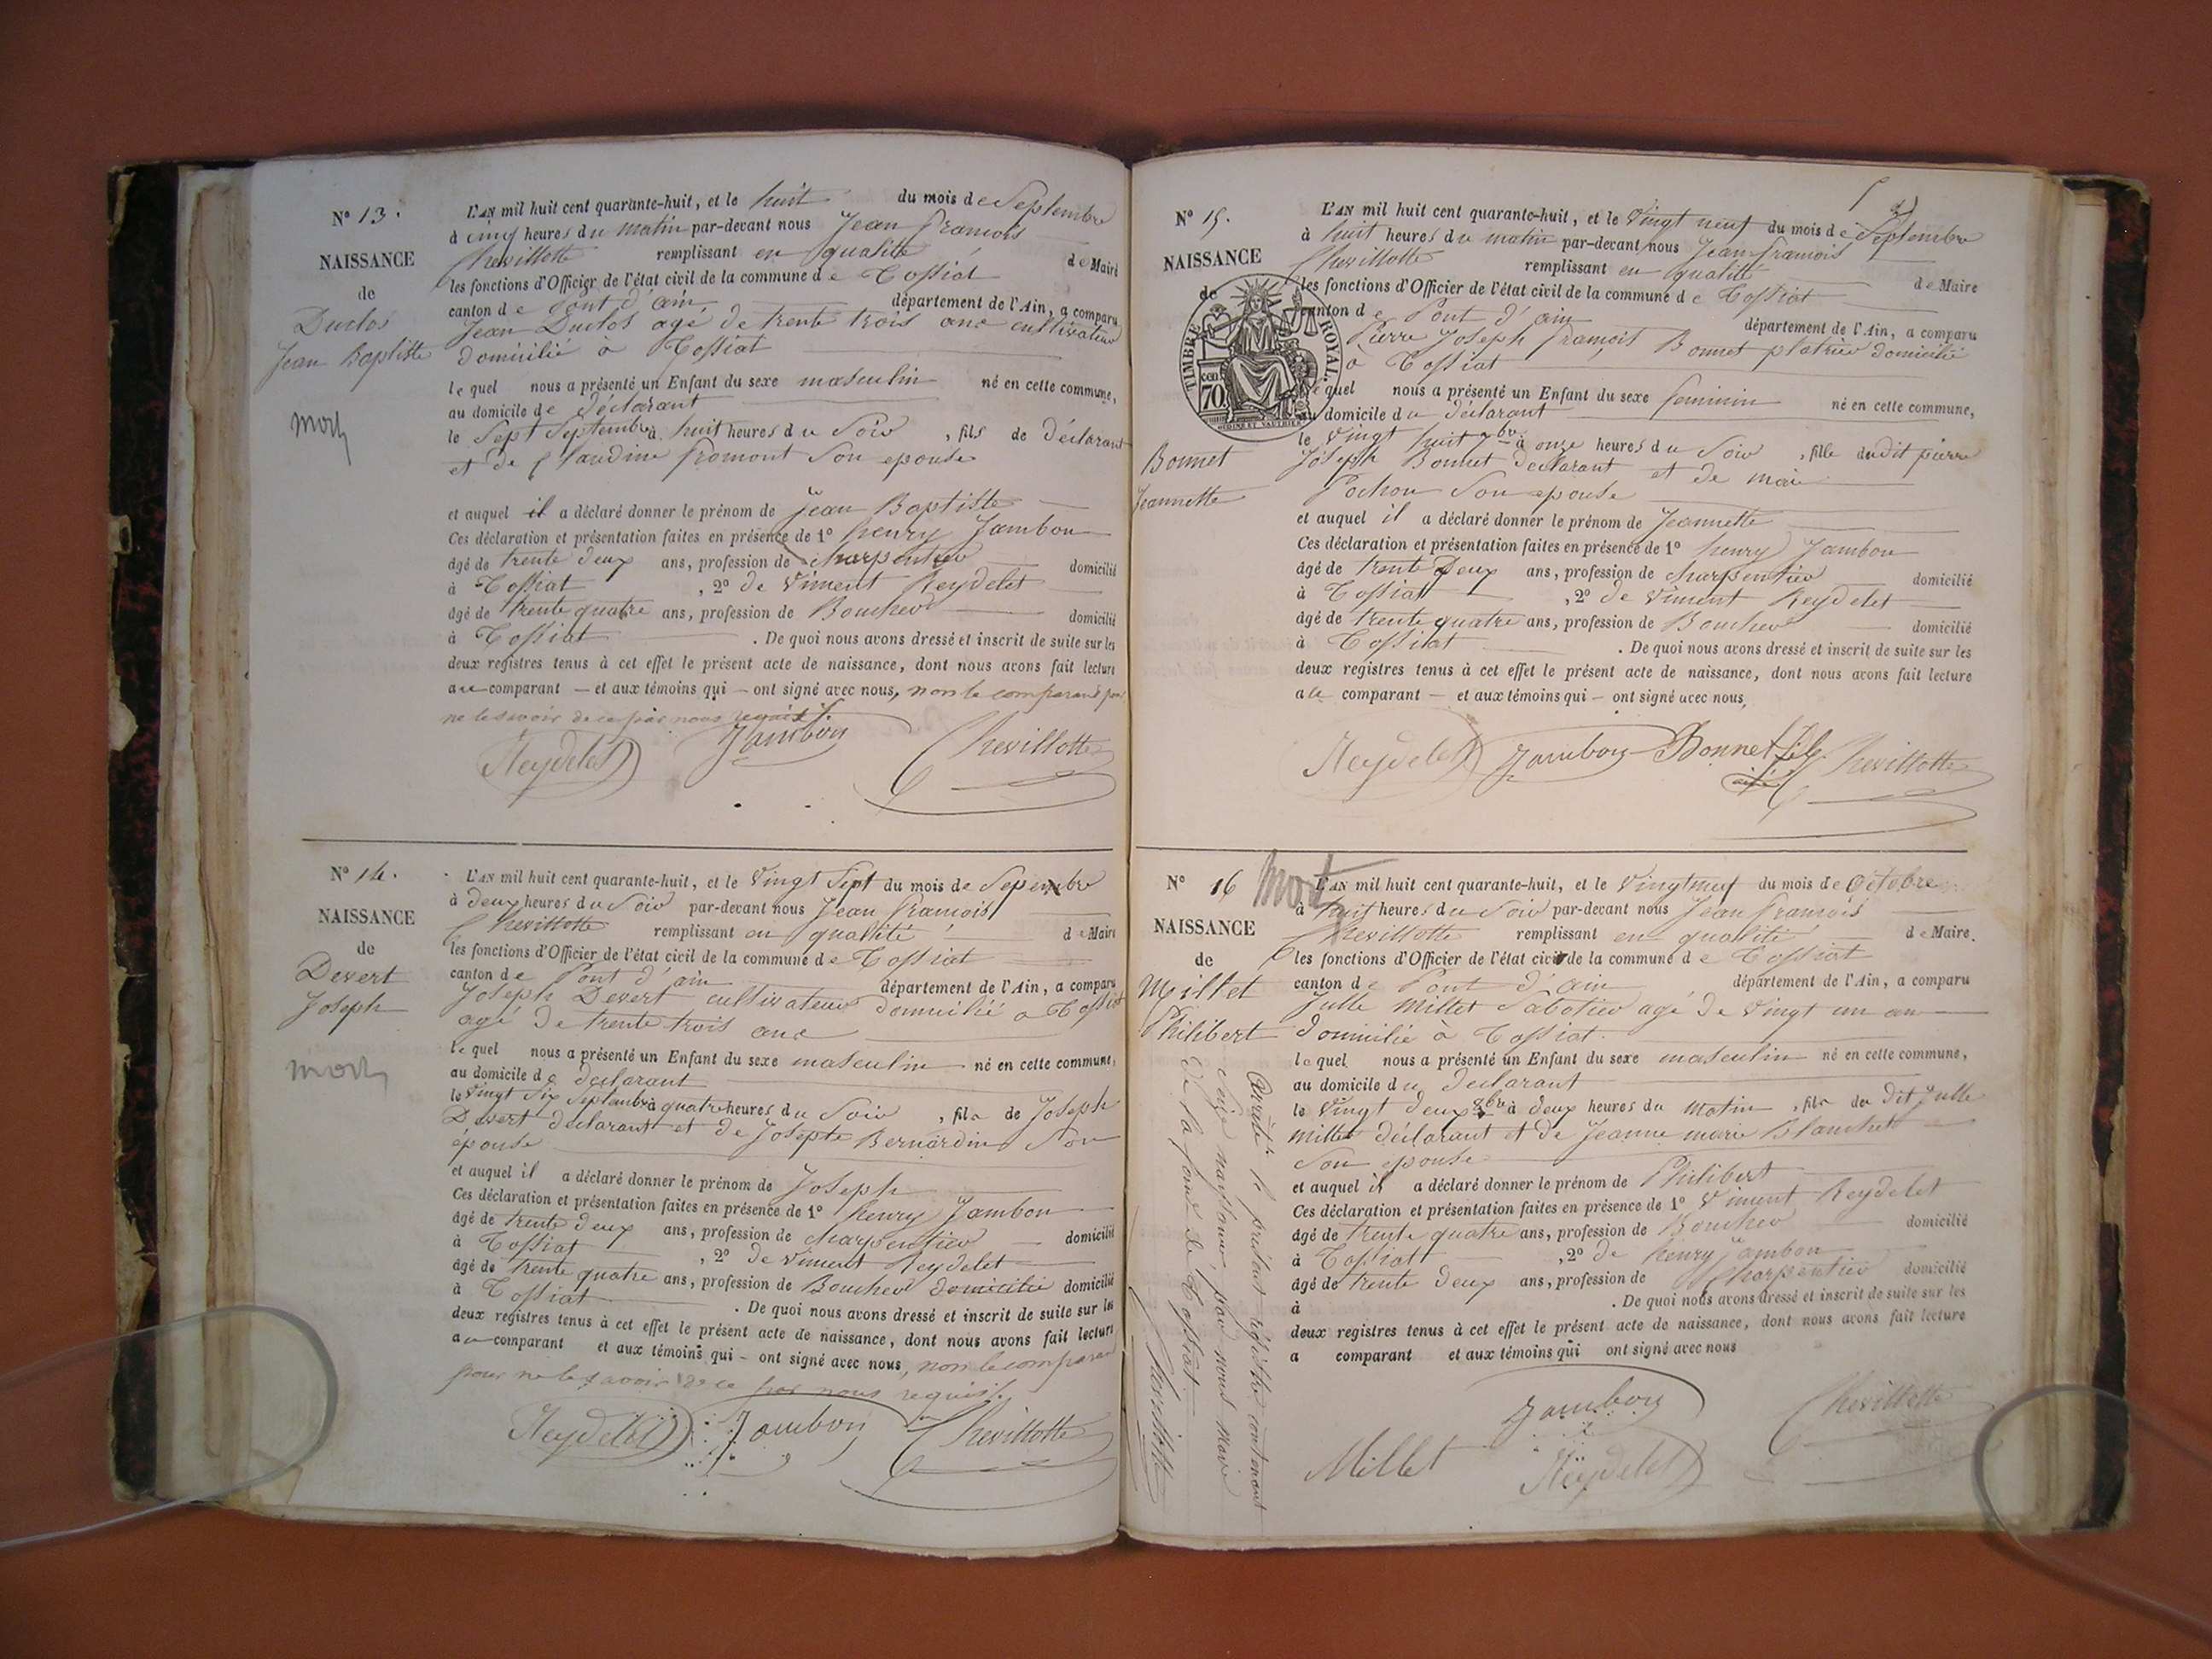 N° 13.
NAISSANCE
de
Duclos
Jean Baptiste
mort
L'AN mil huit cent quarante-huit, et le huit du mois de Septembre
à cinq heures du matin par-devant nous Jean françois
Chevillotte remplissant en qualité de Maire
les fonctions d'Officier de l'état civil de la commune de Tossiat
canton de Pont d'ain département de l'Ain, a comparu
Jean Duclos agé de trente trois ans cultivateur
domicilié à Tossiat
le quel nous a présenté un Enfant du sexe masculin né en cette commune,
au domicile de déclarant
le Sept Septembre à huit heures du Soir, fils de déclarant
et de Claudine fromont Son epouse
et auquel il a déclaré donner le prénom de Jean Baptiste
Ces déclaration et présentation faites en présence de 1° henry Jambon
âgé de trente deux ans, profession de charpentier domicilié
à Tossiat, 2° de Vincent Reydelet
âgé de trente quatre ans, profession de Boucher domicilié
à Tossiat. De quoi nous avons dressé et inscrit de suite sur les
deux registres tenus à cet effet le présent acte de naissance, dont nous avons fait lecture
au comparant - et aux témoins qui - ont signé avec nous, non le comparant pour
ne le savoir de ce par nous requis
Reydelet Jambon Chevillotte
N° 14.
NAISSANCE
de
Devert
Joseph
mort
L'AN mil huit cent quarante-huit, et le Vingt Sept du mois de Septembre
à deux heures du Soir par-devant nous Jean françois
Chevillotte remplissant en qualité de Maire
les fonctions d'Officier de l'état civil de la commune de Tossiat
canton de Pont d'ain département de l'Ain, a comparu
Joseph Devert cultivateur domicilié a Tossiat
agé de trente trois ans
le quel nous a présenté un Enfant du sexe masculin né en cette commune,
au domicile de declarant
le Vingt Six Septembre à quatre heures du Soir, fils de Joseph
Devert declarant et de Josephte Bernardin Son
épouse
et auquel il a déclaré donner le prénom de Joseph
Ces déclaration et présentation faites en présence de 1° henry Jambon
âgé de trente deux ans, profession de charpentier domicilié
à Tossiat, 2° de Vincent Reydelet
âgé de trente quatre ans, profession de Boucher domicilié domicilié
à Tossiat. De quoi nous avons dressé et inscrit de suite sur les
deux registres tenus à cet effet le présent acte de naissance, dont nous avons fait lecture
au comparant et aux témoins qui - ont signé avec nous, non le comparant
pour ne le savoir de ce par nous requis
Reydelet Jambon Chevillotte
N° 15.
NAISSANCE
de
TIMBRE ROYAL
cen. 70
Bonnet
Jeannette
L'AN mil huit cent quarante-huit, et le Vingt neuf du mois de Septembre
à huit heures du matin par-devant nous Jean françois
Chevillotte remplissant en qualité de Maire
les fonctions d'Officier de l'état civil de la commune de Tossiat
canton de Pont d'ain département de l'Ain, a comparu
Pierre Joseph françois Bonnet platrier domicilié
à Tossiat
le quel nous a présenté un Enfant du sexe feminin né en cette commune,
au domicile du déclarant
le Vingt huit 7bre à onze heures du Soir, fille dudit pierre
Joseph Bonnet declarant et de marie
Pochon Son epouse
et auquel il a déclaré donner le prénom de Jeannette
Ces déclaration et présentation faites en présence de 1° henry Jambon
âgé de trente Deux ans, profession de charpentier domicilié
à Tossiat, 2° de Vincent Reydelet
âgé de trente quatre ans, profession de Boucher domicilié
à Tossiat. De quoi nous avons dressé et inscrit de suite sur les
deux registres tenus à cet effet le présent acte de naissance, dont nous avons fait lecture
au comparant - et aux témoins qui - ont signé avec nous,
Reydelet Jambon Bonnet fils ainé Chevillotte
N° 16
mort
NAISSANCE
de
Millet
Philibert
L'AN mil huit cent quarante-huit, et le Vingt neuf du mois de Octobre
à huit heures du Soir par-devant nous Jean françois
Chevillotte remplissant en qualité de Maire.
les fonctions d'Officier de l'état civil de la commune de Tossiat
canton de Pont d'ain département de l'Ain, a comparu
Jule Millet Sabotier agé de Vingt un an
domicilié à Tossiat.
le quel nous a présenté un Enfant du sexe masculin né en cette commune,
au domicile du declarant
le Vingt deux 8bre à deux heures du matin, fils du dit Julle
Millet déclarant et de Jeanne marie Blanchet
Son epouse
et auquel il a déclaré donner le prénom de Philibert
Ces déclaration et présentation faites en présence de 1° Vincent Reydelet
âgé de trente quatre ans, profession de Boucher domicilié
à Tossiat, 2° de henry Jambon
âgé de trente deux ans, profession de Charpentier domicilié
à . De quoi nous avons dressé et inscrit de suite sur les
deux registres tenus à cet effet le présent acte de naissance, dont nous avons fait lecture
a comparant et aux témoins qui ont signé avec nous
Jambon Chevillotte
Millet Reydelet
Arrêté le présent régistre contenant
Seize naissance, par nous maire
de la commune de Tossiat
Chevillotte